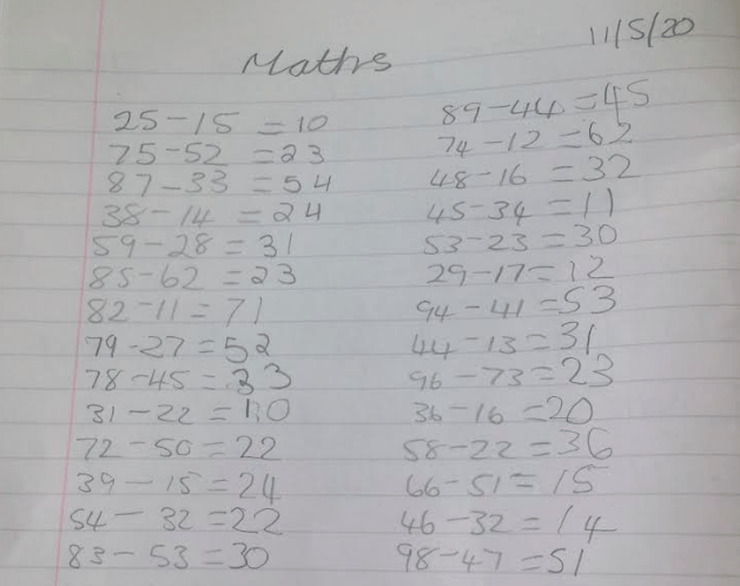 11/5/20
Maths
25-15 = 10
75-52 = 23
87-33 = 54
38-14 = 24
59-28 = 31
85-62 = 23
82-11 = 71
79-27 = 52
78-45 = 33
31-22 = 10
72-50 = 22
39-15 = 24
54-32 = 22
83-53 = 30
89-44 = 45
74-12 = 62
48-16 = 32
45-34 = 11
53-23 = 30
29-17 = 12
94-41 = 53
44-13 = 31
96-73 = 23
36-16 = 20
58-22 = 36
66-51 = 15
46-32 = 14
98-47 = 51